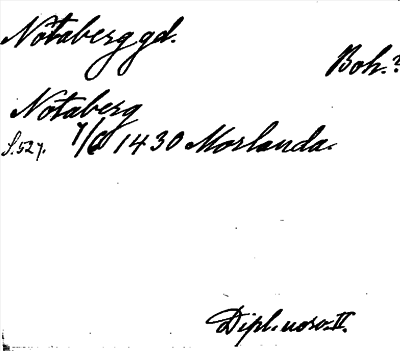 Nötaberg gd.
Boh.?
Nötaberg
S. 527. 7/8 1430 Morlanda.
Dipl. norv. II.